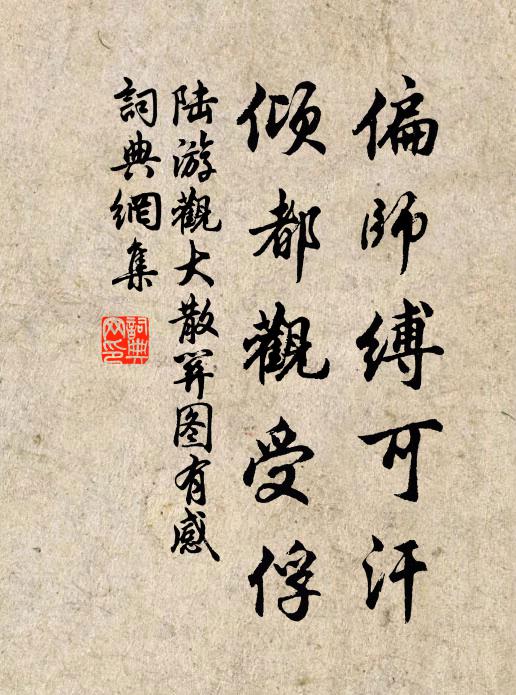 偏师缚可汗
倾都觀受俘
陆游觀大散關图有感
詞典網集
詞典網印